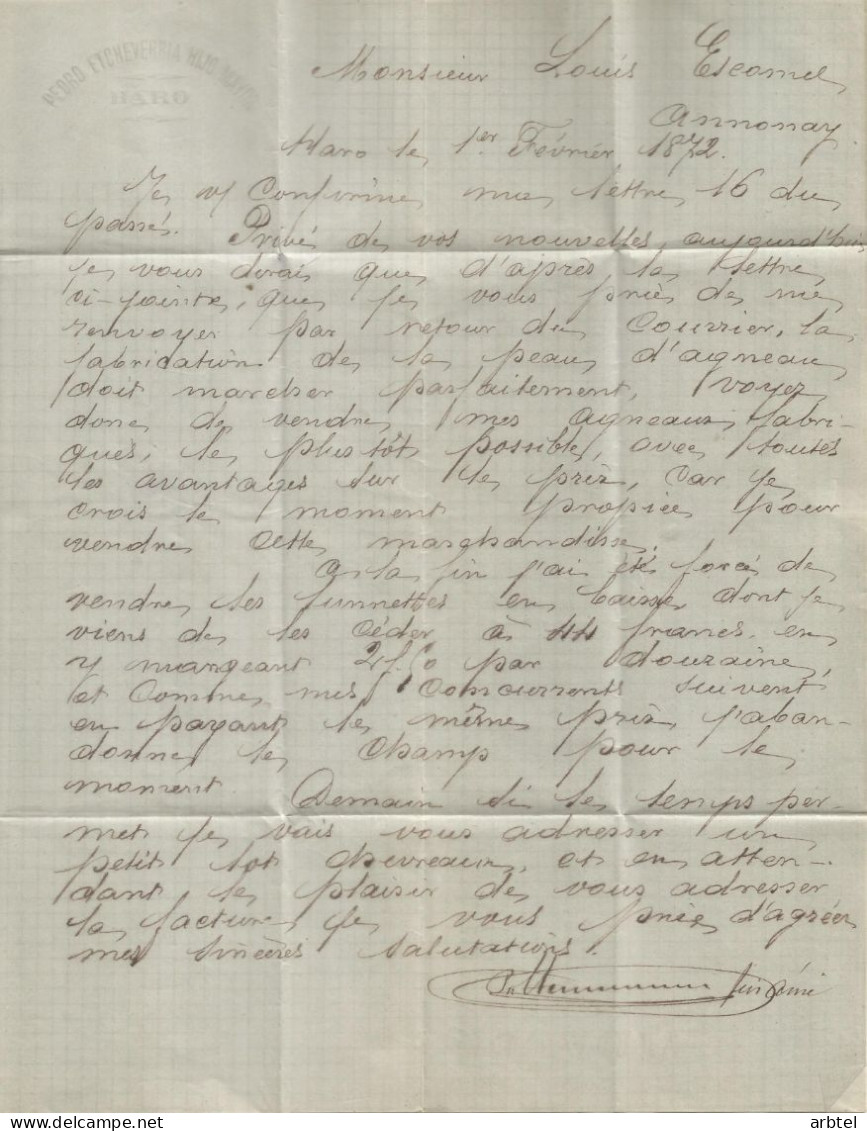 PEDRO ETCHEVERRIA HIJO MAYOR
HARO
Monsieur Louis Escomel
Annonay
Haro le 1er Février 1872.
Je v/ Confirme ma lettre 16 du
passé. Privé de vos nouvelles, aujourd'hui
je vous dirai que d'après la lettre
ci-jointe, que je vous priès de me
renvoyer par retour du Courrier, la
fabrication de la peau d'agneau
doit marcher parfaitement, Voyez
donc de vendre mes agneaux fabri-
qués, le plus tôt possible, avec toutes
les avantages sur le prix, Car je
crois le moment propice pour
vendre Cette marchandisse.
A la fin j'ai été forcé de
vendre les lunnettes en baisse, dont je
viens de les Céder à 44 francs en
y mangeant 2f50 par douzaine,
et Comme mes Concurrents suivent
en payant le même prix, j'aban-
donne le Champ pour le
moment. Demain si le temps per-
met je vais vous adresser un
petit lot chevreaux, et en atten-
dant le plaisir de vous adresser
la facture je vous priès d'agréer
mes sincères salutations.